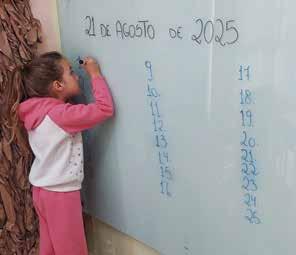 21 DE AGOSTO DE 2025
9
10.
11.
12.
13.
14.
15.
16.
17.
18.
19.
20.
21.
22.
23.
24.
25.